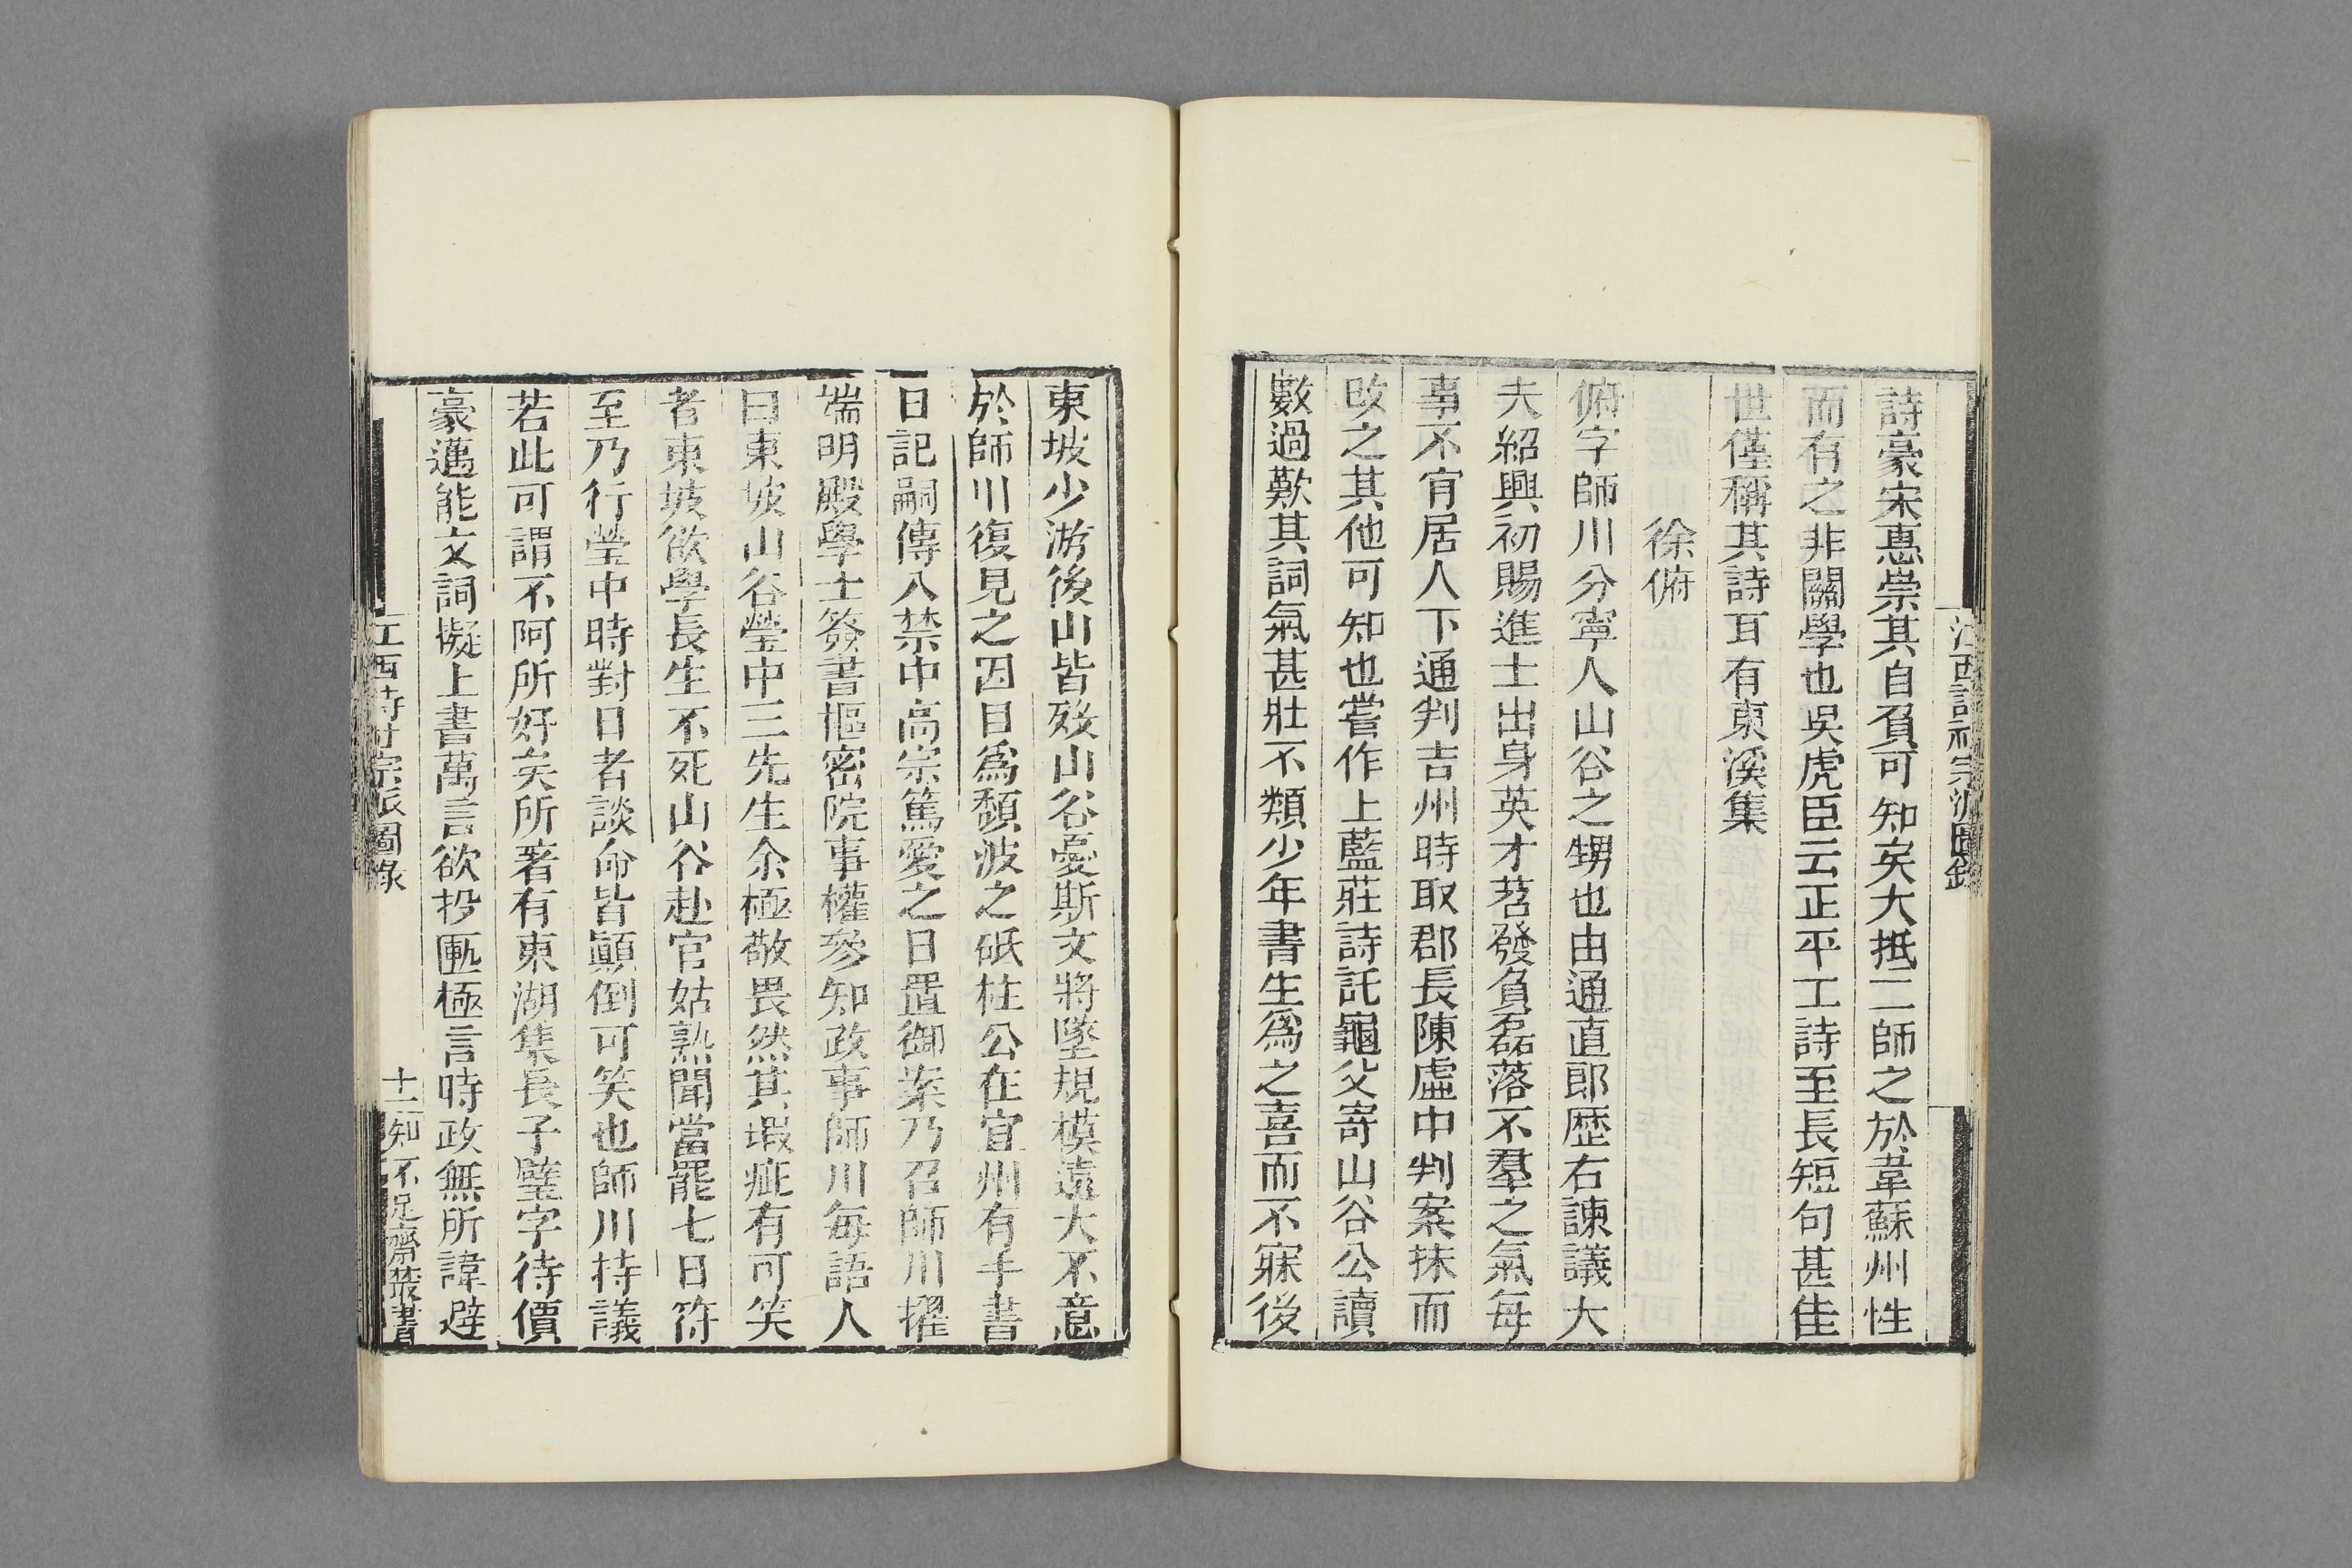 江西詩社宗派圖錄
詩豪宋惠崇其自負可知矣大抵二師之於韋蘇州性
而有之非關學也吳虎臣云正平工詩至長短句甚佳
世僅稱其詩耳有東溪集
徐俯
俯字師川分寧人山谷之甥也由通直郎歷右諫議大
夫紹興初賜進士出身英才茗發負磊落不羣之氣每
事不肎居人下通判吉州時取郡長陳虛中判案抹而
改之其他可知也嘗作上藍莊詩託龜父寄山谷公讀
數過歎其詞氣甚壯不類少年書生爲之喜而不寐後
東坡少游後山皆歿山谷憂斯文將墜規模遠大不意
於師川復見之因目爲頹波之砥柱公在宜州有手書
日記嗣傳入禁中高宗篤愛之日置御案乃召師川擢
端明殿學士簽書樞密院事權參知政事師川每語人
曰東坡山谷瑩中三先生余極敬畏然其瑕疵有可笑
者東坡欲學長生不死山谷赴官姑熟聞當罷七日符
至乃行瑩中時對日者談命皆顛倒可笑也師川持議
若此可謂不阿所好矣所著有東湖集長子璧字待價
豪邁能文詞擬上書萬言欲投匭極言時政無所諱避
江西詩社宗派圖錄 十二 知不足齋叢書